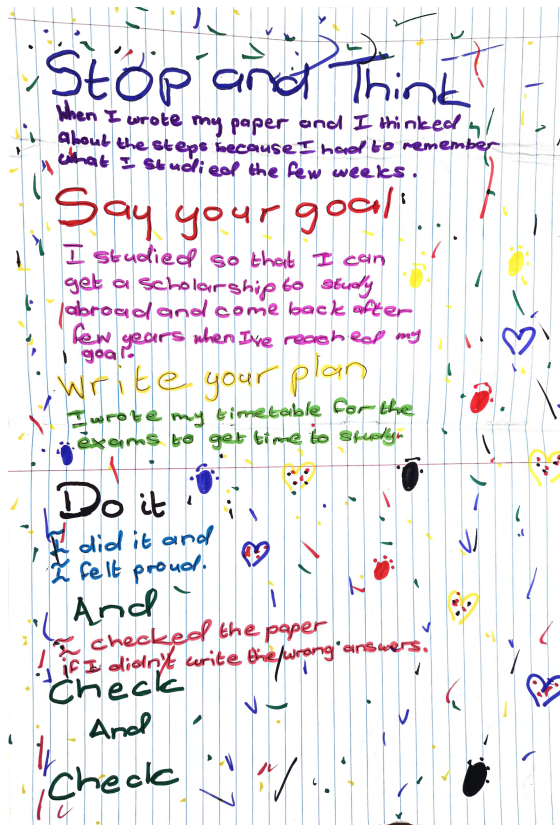 Stop and Think
When I wrote my paper and I thinked
about the steps because I had to remember
what I studied the few weeks.
Say your goal
I studied so that I can
get a scholarship to study
abroad and come back after
few years when I've reached my
goal.
Write your plan
I wrote my timetable for the
exams to get time to study.
Do it
I did it and
I felt proud.
And
I checked the paper
if I didn't write the wrong answers.
Check
And
Check